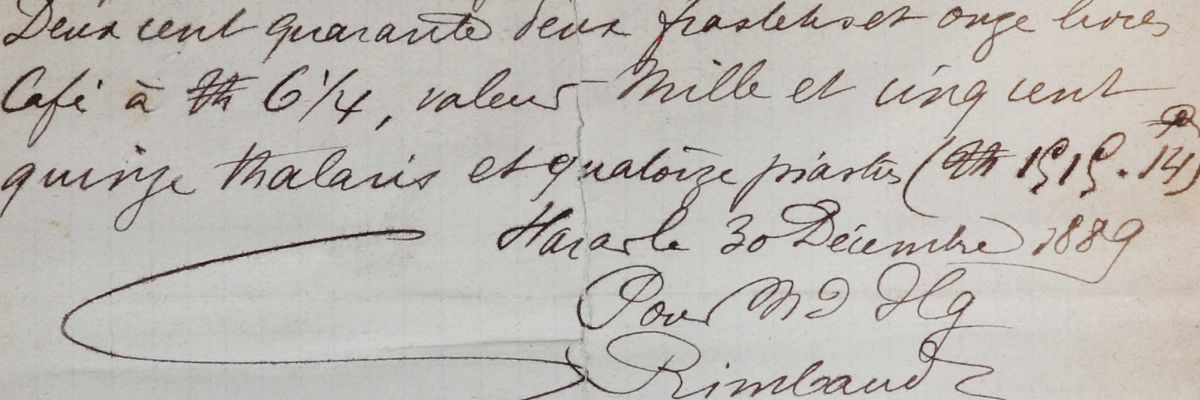 Deux cent quarante deux frasleh et onze livres
Café à Th 6 1/4, valeur Mille et cinq cent
quinze thalaris et quatorze piastres (Th 1515. P 14)
Harar le 30 Décembre 1889
Pour M I Ilg
Rimbaud